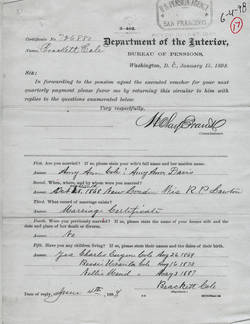 U.S. PENSION AGENCY
SAN FRANCISCO
6-4-98
3-402.
Certificate No.
Name, Brackett Cole
Department of the Interior,
BUREAU OF PENSIONS,
Washington, D. C., January 15, 1898.
SIR:
In forwarding to the pension agent the executed voucher for your next
quarterly payment please favor me by returning this circular to him with
replies to the questions enumerated below.
Very respectfully,
Commissioner.
First. Are you married? If so, please state your wife's full name and her maiden name.
Amy Ann Cole : Amy Ann Davis
Second. When, where, and by whom were you married?
1868 New London Wis
Third. What record of marriage exists?
Marriage Certificate
Fourth. Were you previously married? If so, please state the name of your former wife and the date and
place of her death or divorce.
No
Fifth. Have you any children living? If so, please state their names and the dates of their birth.
Yes Charles Eugene Cole Aug 26 1868
Cole Aug 16 1873
Nellie Maud Aug 3 1887
Brackett Cole
Date of reply, June 4th, 1898